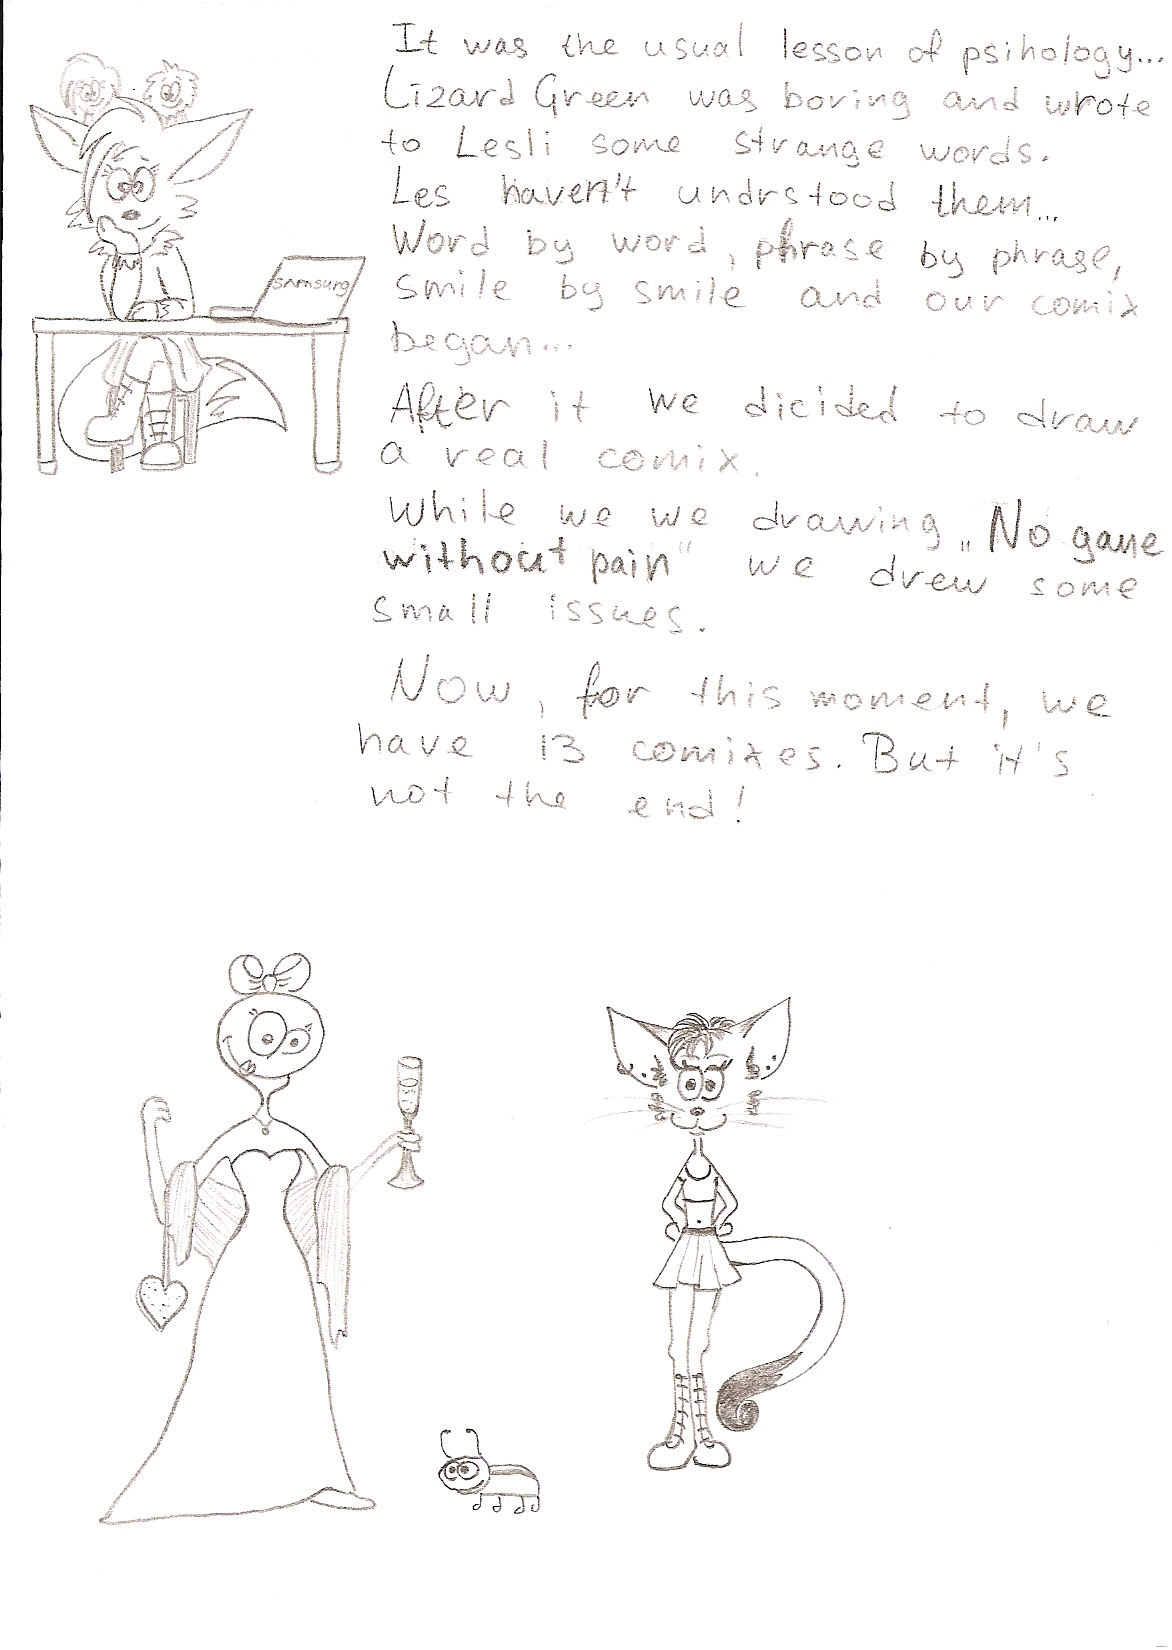 It was the usual lesson of psihology...
Lizard Green was boring and wrote
to Lesli some strange words.
Les haven't undrstood them...
Word by word, phrase by phrase,
smile by smile and our comix
began...
After it we dicided to draw
a real comix.
While we we drawing „No gane
without pain" we drew some
small issues.
Now, for this moment, we
have 13 comixes. But it's
not the end!
SAMSUNG